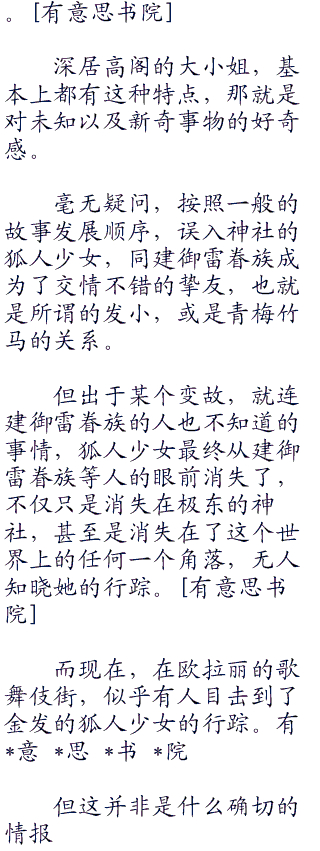 。[有意思书院]
深居高阁的大小姐，基
本上都有这种特点，那就是
对未知以及新奇事物的好奇
感。
毫无疑问，按照一般的
故事发展顺序，误入神社的
狐人少女，同建御雷眷族成
为了交情不错的挚友，也就
是所谓的发小，或是青梅竹
马的关系。
但出于某个变故，就连
建御雷眷族的人也不知道的
事情，狐人少女最终从建御
雷眷族等人的眼前消失了，
不仅只是消失在极东的神
社，甚至是消失在了这个世
界上的任何一个角落，无人
知晓她的行踪。[有意思书
院]
而现在，在欧拉丽的歌
舞伎街，似乎有人目击到了
金发的狐人少女的行踪。有
*意 *思 *书 *院
但这并非是什么确切的
情报